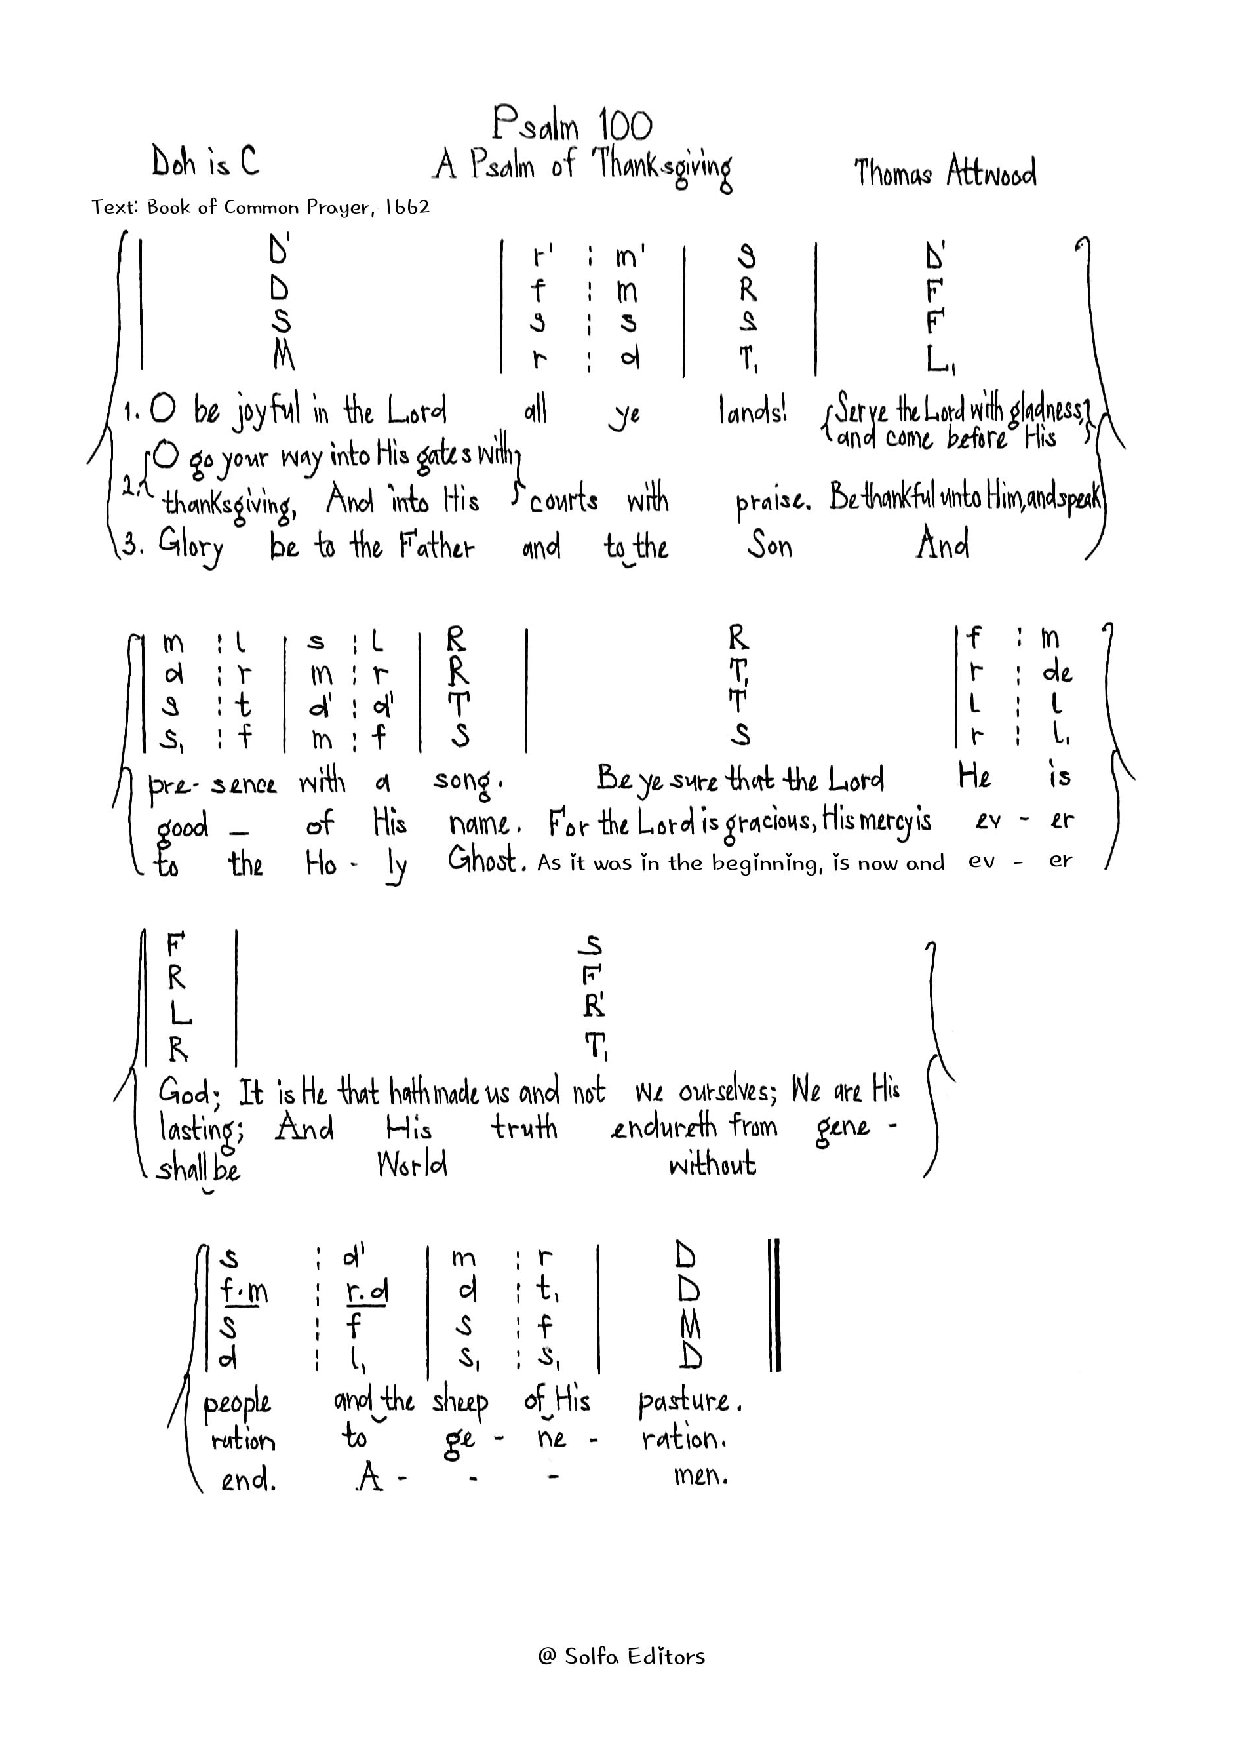 Psalm 100
Doh is C A Psalm of Thanksgiving Thomas Attwood
Text: Book of Common Prayer, 1662
| D' | r' : m' | S | D'
| D | f : m | R | F
| S | s : s | S | F
| M | r : d | T₁ | L₁
1. O be joyful in the Lord all ye lands! {Serve the Lord with gladness,}
{and come before His}
2. {O go your way into His gates with}
{thanksgiving, And into His} courts with praise. Be thankful unto Him, and speak
3. Glory be to the Father and to the Son And
| m : l | s : L | R | R | f : m
| d : r | m : r | R | T₁ | r : de
| s : t | d' : d' | T | T | L : l
| s₁ : f | m : f | S | S | r : l₁
pre- sence with a song. Be ye sure that the Lord He is
good _ of His name. For the Lord is gracious, His mercy is ev - er
to the Ho - ly Ghost. As it was in the beginning, is now and ev - er
| F | S
| R | F
| L | R'
| R | T₁
God; It is He that hath made us and not we ourselves; We are His
lasting; And His truth endureth from gene -
shall be World without
| s : d' | m : r | D ||
| f.m : r.d | d : t₁ | D ||
| s : f | s : f | M ||
| d : l₁ | s₁ : s₁ | D ||
people and the sheep of His pasture.
ration to ge - ne - ration.
end. A - - - men.
@ Solfa Editors